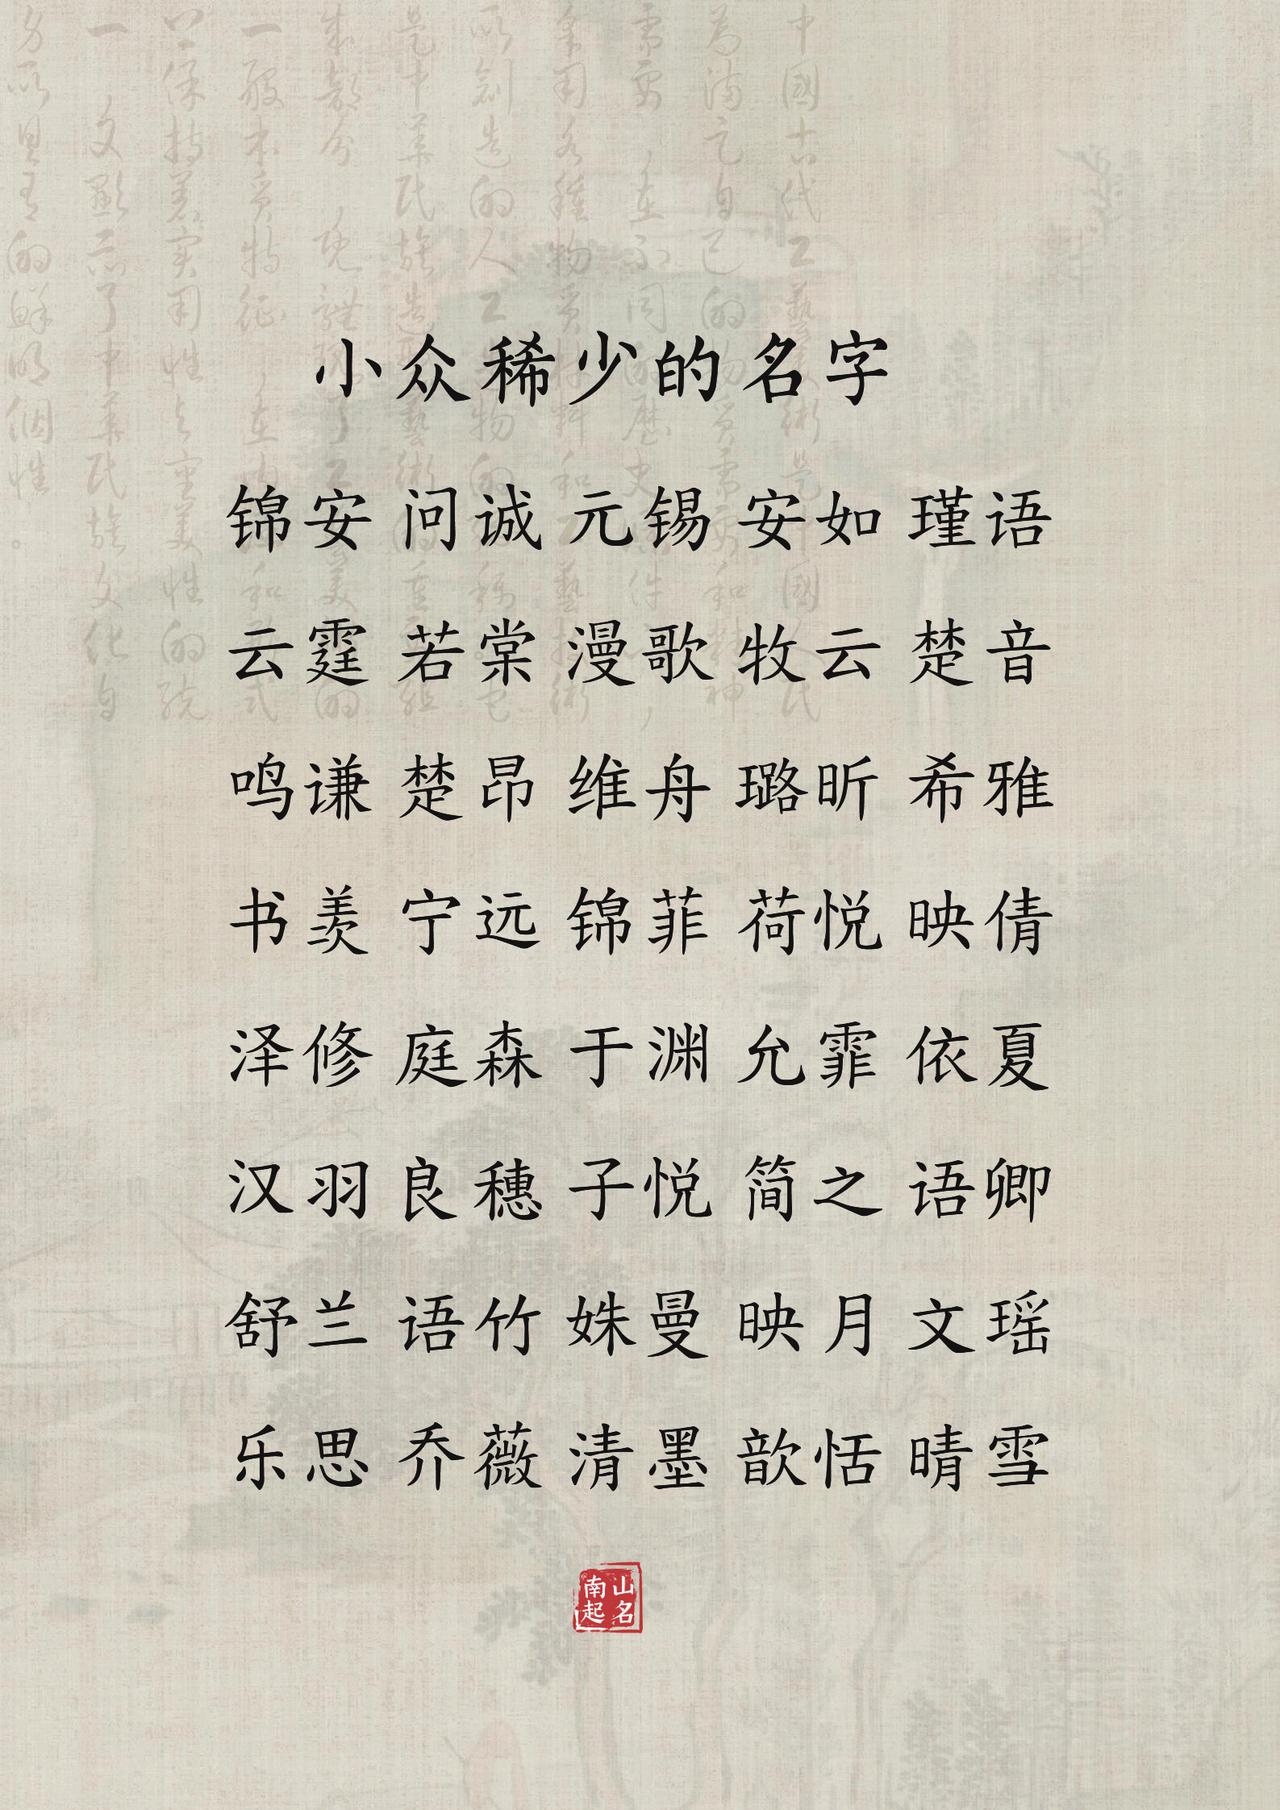 小众稀少的名字
锦安 问诚 元锡 安如 瑾语
云霆 若棠 漫歌 牧云 楚音
鸣谦 楚昂 维舟 璐昕 希雅
书羡 宁远 锦菲 荷悦 映倩
泽修 庭森 于渊 允霏 依夏
汉羽 良穗 子悦 简之 语卿
舒兰 语竹 姝曼 映月 文瑶
乐思 乔薇 清墨 歆恬 晴雪
南山
起名